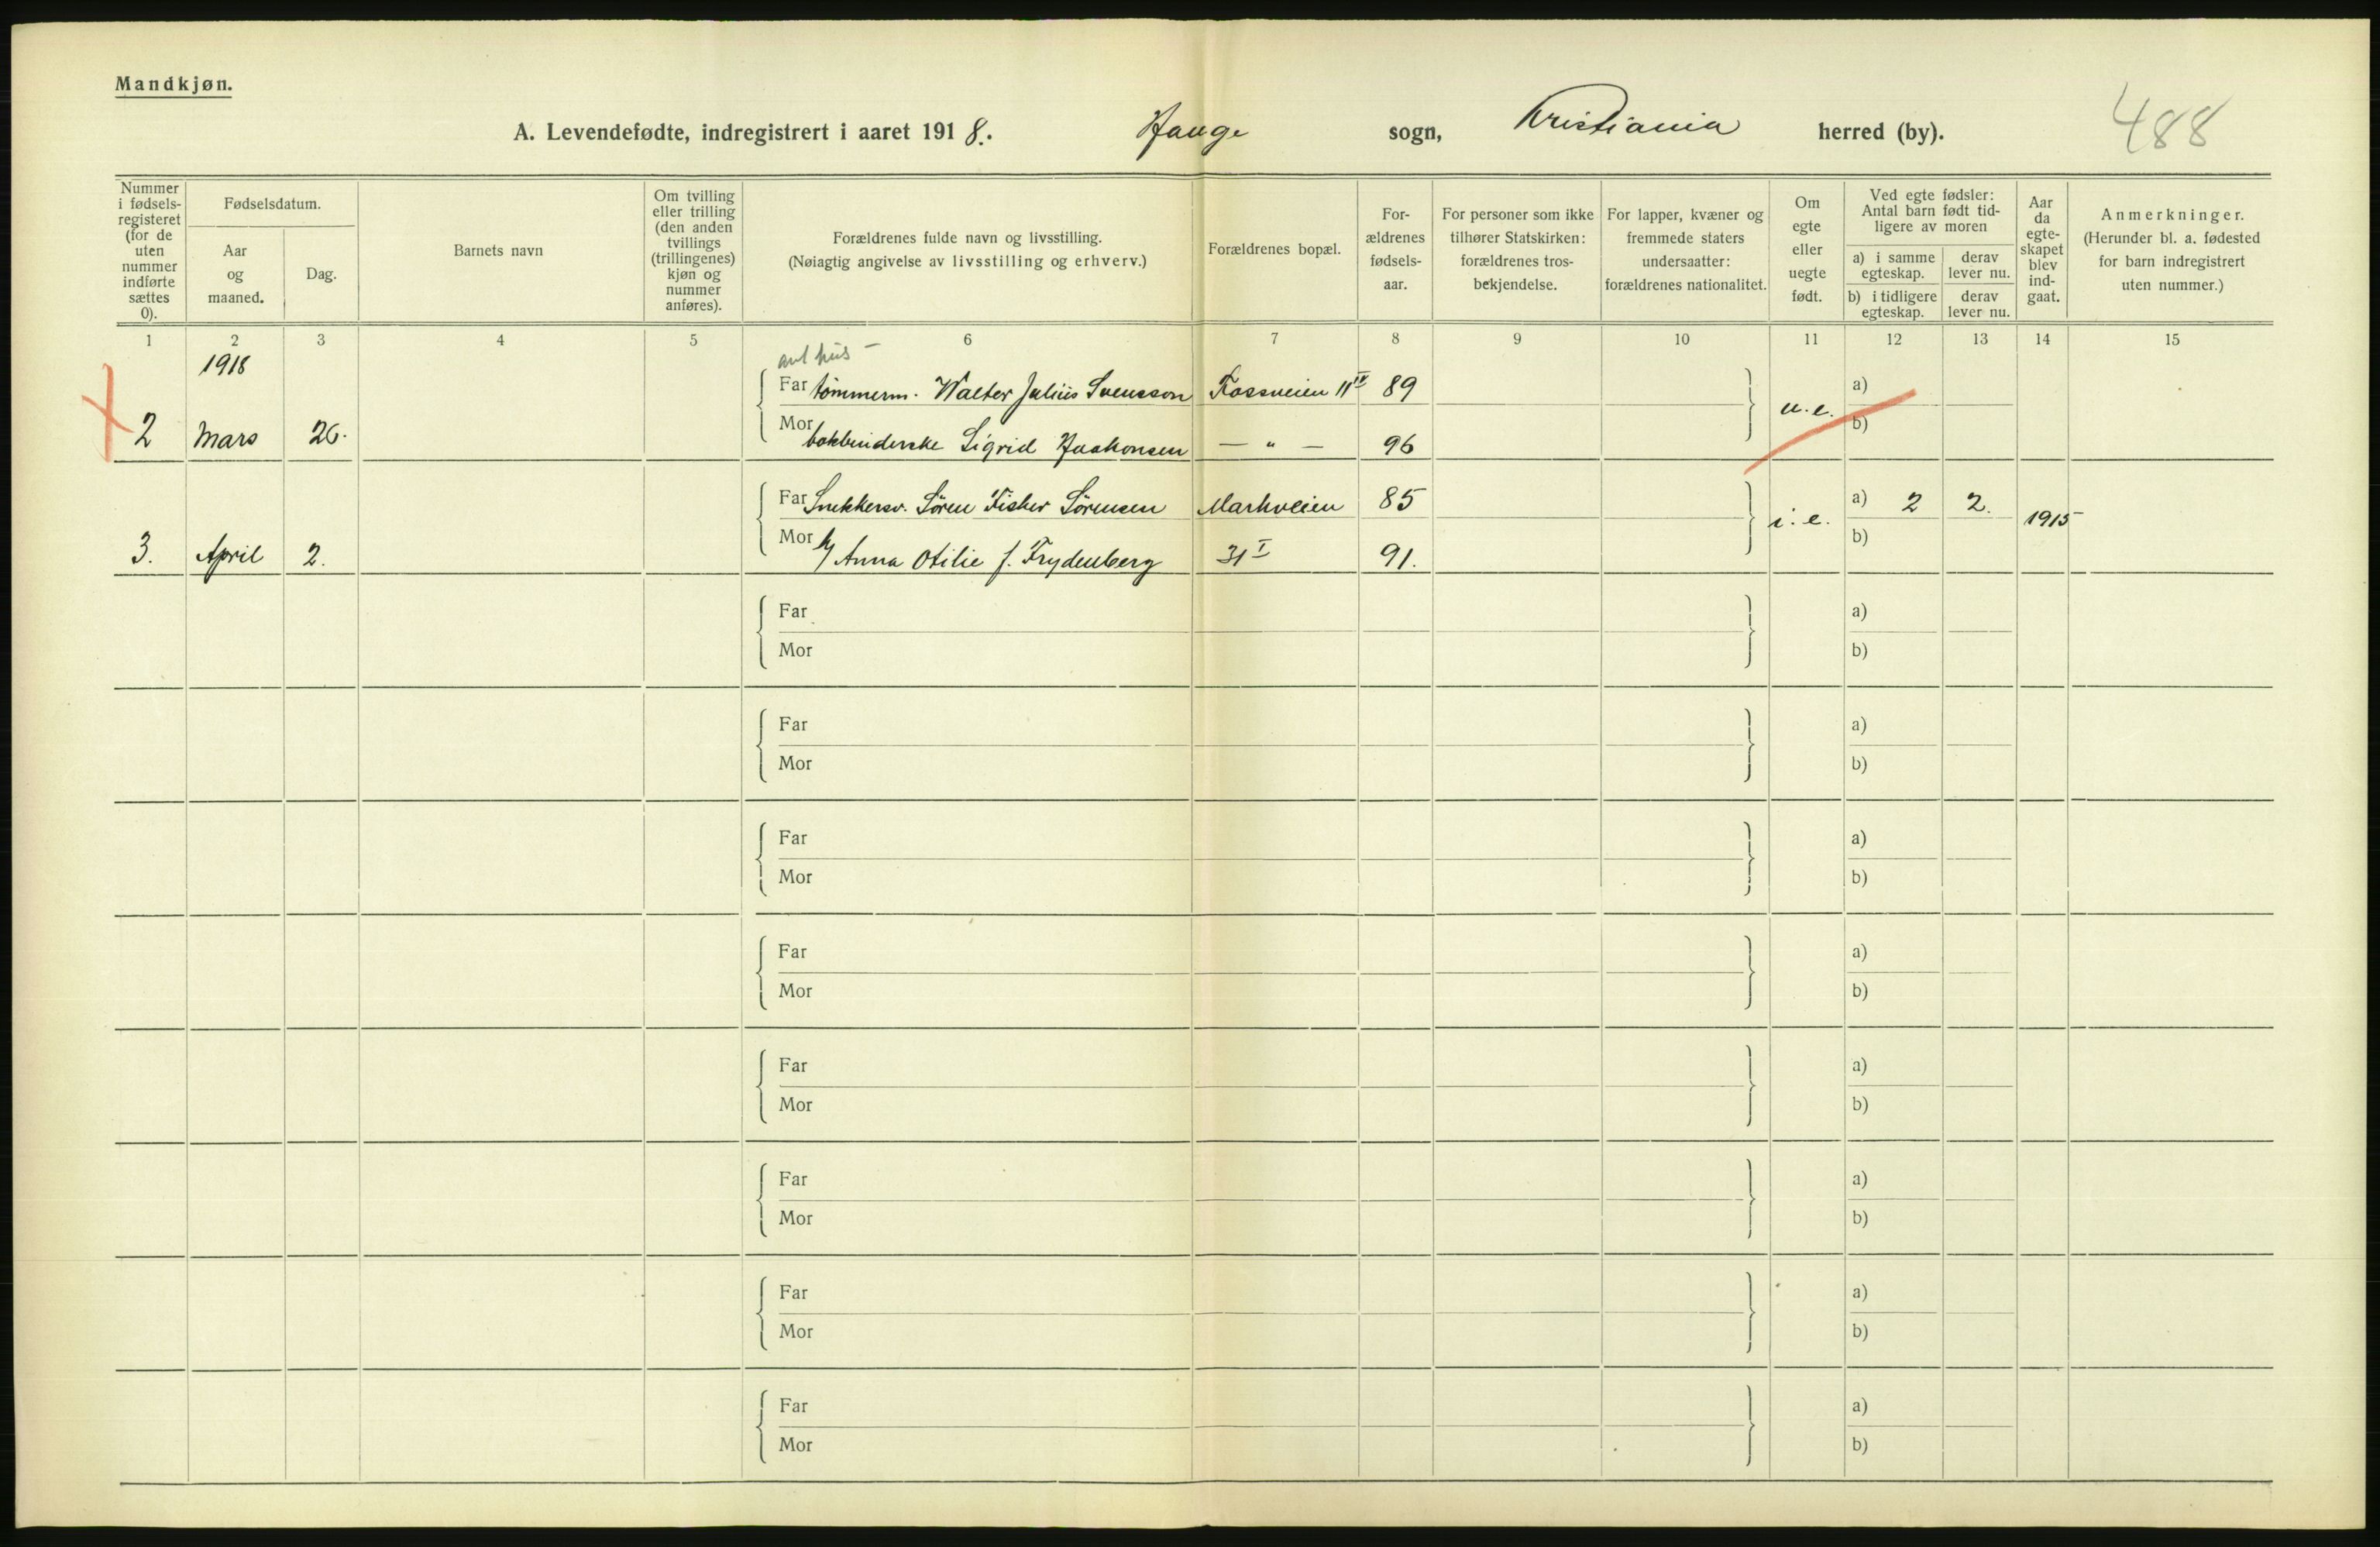 Mandkjøn.
A. Levendefødte, indregistrert i aaret 1918. Hauge sogn, Kristiania herred (by). 488
Nummer i fødsels-registeret (for de uten nummer indførte sættes 0).
Fødselsdatum.
Aar og maaned.
Dag.
Barnets navn
Om tvilling eller trilling (den anden tvillings (trillingenes) kjøn og nummer anføres).
Forældrenes fulde navn og livsstilling.
(Nøiagtig angivelse av livsstilling og erhverv.)
Forældrenes bopæl.
For-ældrenes fødsels-aar.
For personer som ikke tilhører Statskirken: forældrenes tros-bekjendelse.
For lapper, kvæner og fremmede staters undersaatter: forældrenes nationalitet.
Om egte eller uegte født.
Ved egte fødsler: Antal barn født tid-ligere av moren
a) i samme egteskap. derav lever nu.
b) i tidligere egteskap. derav lever nu.
Aar da egte-skapet blev ind-gaat.
Anmerkninger.
(Herunder bl. a. fødested for barn indregistrert uten nummer.)
1 2 3 4 5 6 7 8 9 10 11 12 13 14 15
1918
Far tømmerm. Walter Julius Svensson Fossveien 11 IV 89 a)
2 Mars 26. Mor bokbinderske Sigrid Haakonsen — " — 96 u.e. b)
Far Snekkersv. Søren Fisker Sørensen Markveien 85 a) 2 2.
3. April 2. Mor h/ Anna Otilie f. Frydenberg 31 I 91. i.e. b) 1915
Far a)
Mor b)
Far a)
Mor b)
Far a)
Mor b)
Far a)
Mor b)
Far a)
Mor b)
Far a)
Mor b)
Far a)
Mor b)
Far a)
Mor b)